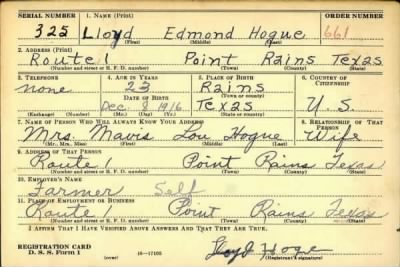 SERIAL NUMBER 1. NAME (Print) ORDER NUMBER
325 Lloyd Edmond Hogue 661
(First) (Middle) (Last)
2. ADDRESS (Print)
Route 1 Point Rains Texas
(Number and street or R. F. D. number) (Town) (County) (State)
3. TELEPHONE 4. AGE IN YEARS 5. PLACE OF BIRTH 6. COUNTRY OF CITIZENSHIP
none 23 Rains
DATE OF BIRTH (Town or county)
Dec 8 1916 Texas U. S.
(Exchange) (Number) (Mo.) (Day) (Yr.) (State or country)
7. NAME OF PERSON WHO WILL ALWAYS KNOW YOUR ADDRESS 8. RELATIONSHIP OF THAT PERSON
Mrs. Mavis Lou Hogue Wife
(Mr., Mrs., Miss) (First) (Middle) (Last)
9. ADDRESS OF THAT PERSON
Route 1 Point Rains Texas
(Number and street or R. F. D. number) (Town) (County) (State)
10. EMPLOYER'S NAME
Farmer Self
11. PLACE OF EMPLOYMENT OR BUSINESS
Route 1 Point Rains Texas
(Number and street or R. F. D. number) (Town) (County) (State)
I AFFIRM THAT I HAVE VERIFIED ABOVE ANSWERS AND THAT THEY ARE TRUE.
REGISTRATION CARD
D. S. S. Form 1 16-17105 Lloyd Hogue
(Registrant's signature)